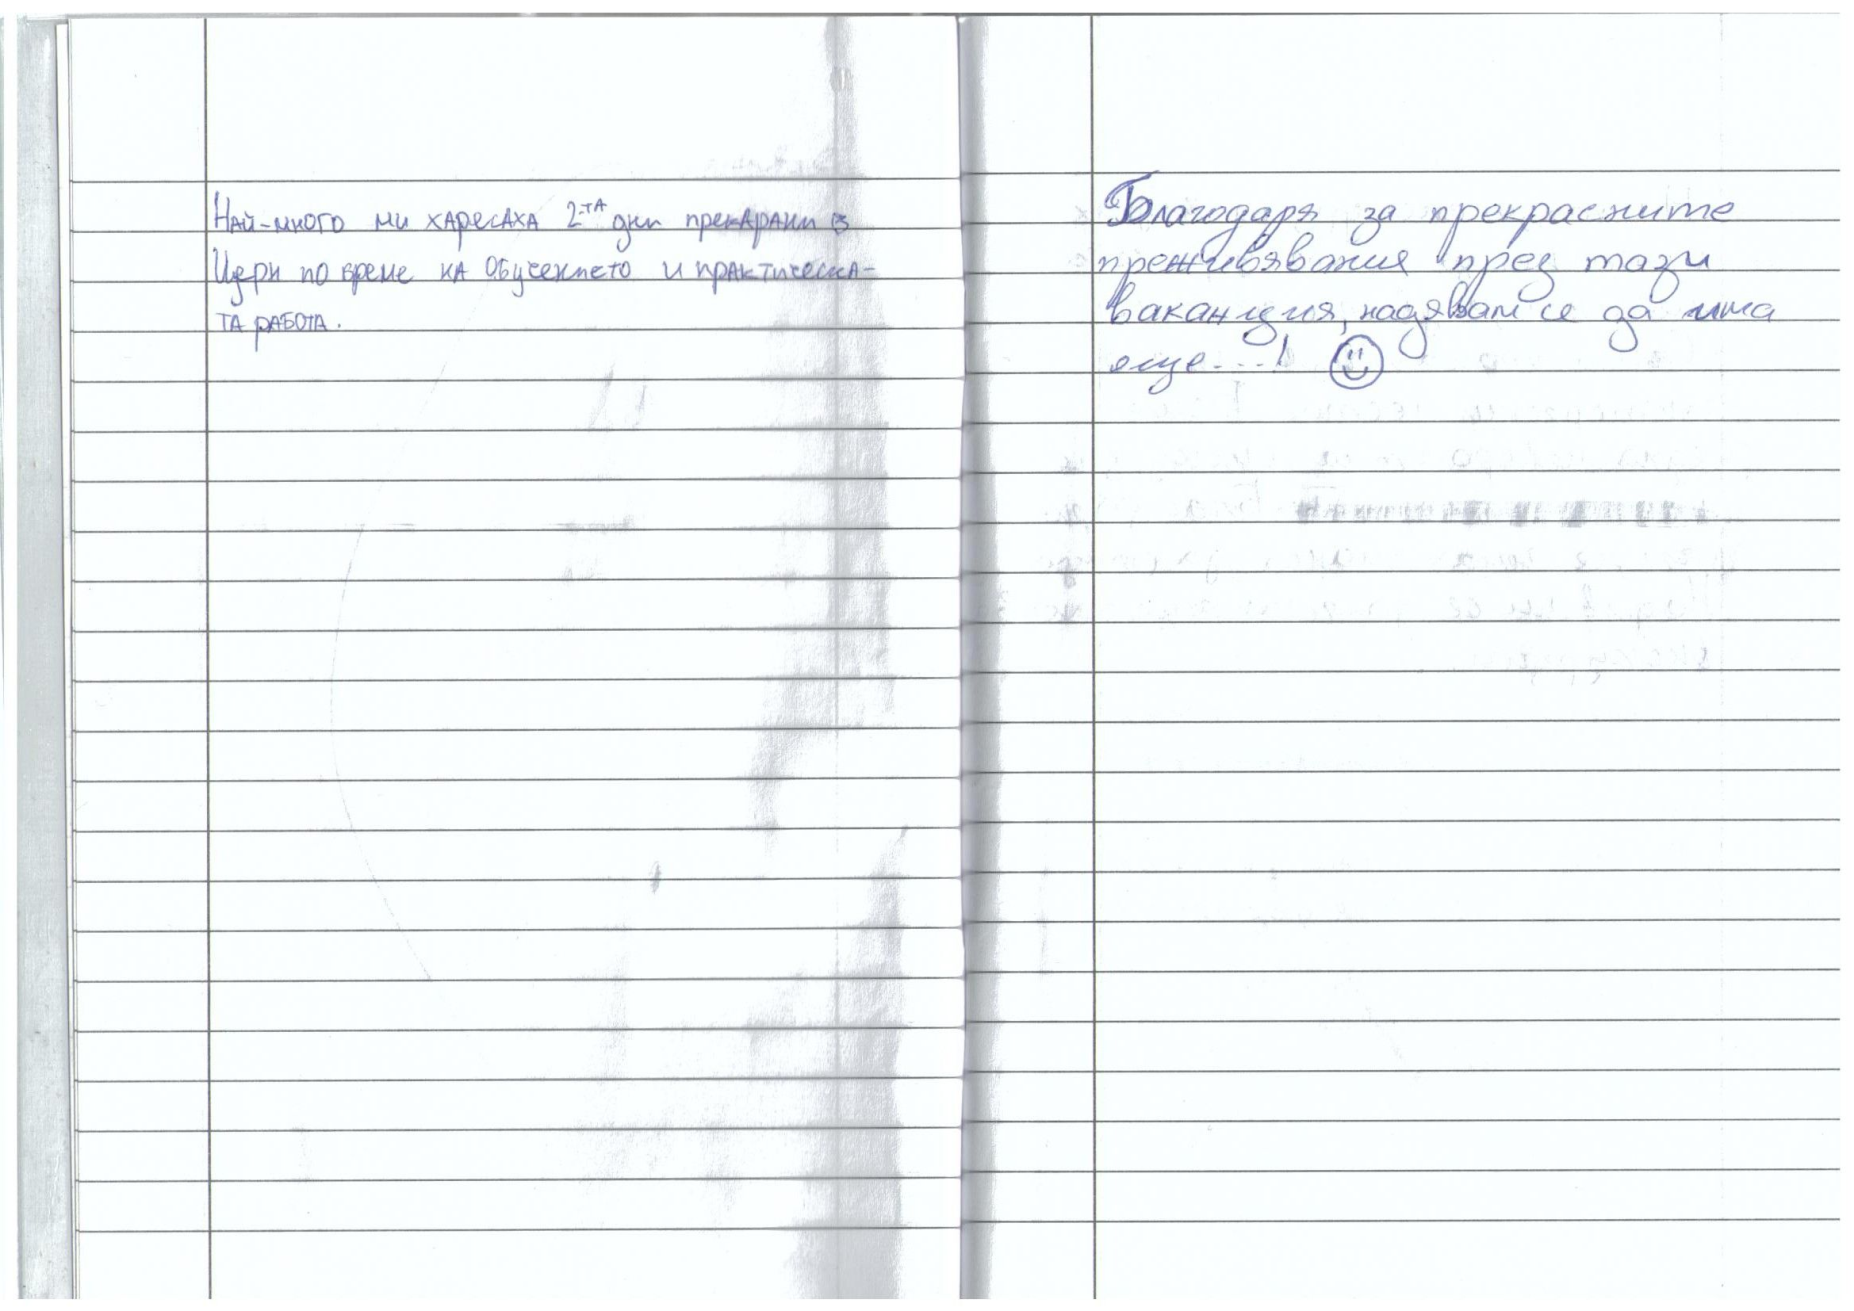 Най-много ми харесаха 2-та дни прекарани в
Цери по време на обучението и практическа-
та работа.
Благодаря за прекрасните
преживявания през тази
ваканция, надявам се да има
още....!